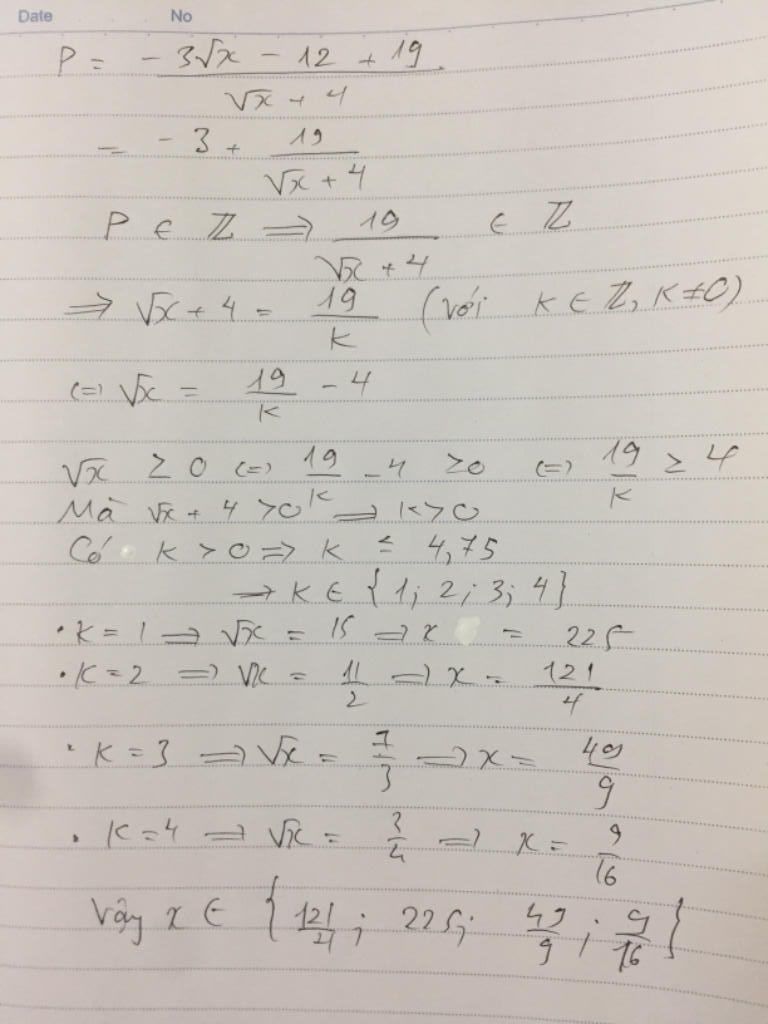 Date No
P = -3√x - 12 + 19 / √x + 4
= -3 + 19 / √x + 4
P ∈ ℤ ⟹ 19 / √x + 4 ∈ ℤ
⟹ √x + 4 = 19/K (với K ∈ ℤ, K ≠ 0)
(=) √x = 19/K - 4
√x ≥ 0 (=) 19/K - 4 ≥ 0 (=) 19/K ≥ 4
Mà √x + 4 > 0 ⟹ K > 0
Có K > 0 ⟹ K ≤ 4,75
→ K ∈ {1; 2; 3; 4}
• K = 1 ⟹ √x = 15 ⟹ x = 225
• K = 2 ⟹ √x = 11/2 ⟹ x = 121/4
• K = 3 ⟹ √x = 7/3 ⟹ x = 49/9
• K = 4 ⟹ √x = 3/4 ⟹ x = 9/16
Vậy x ∈ {121/4; 225; 49/9; 9/16}